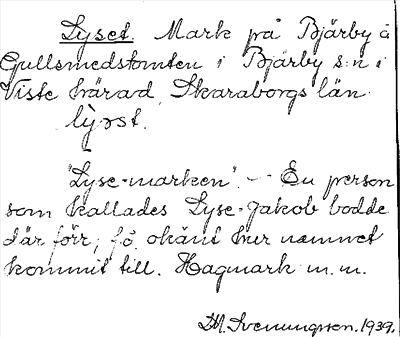 Lyset. Mark på Bjärby å
Gullsmedstomten i Bjärby s:n i
Viste härad, Skaraborgs län.
"Lyse-marken". — En person
som kallades Lyse-Jakob bodde
där förr; f.ö. okänt hur namnet
kommit till. Hagmark m.m.
Svenungsson. 1939.